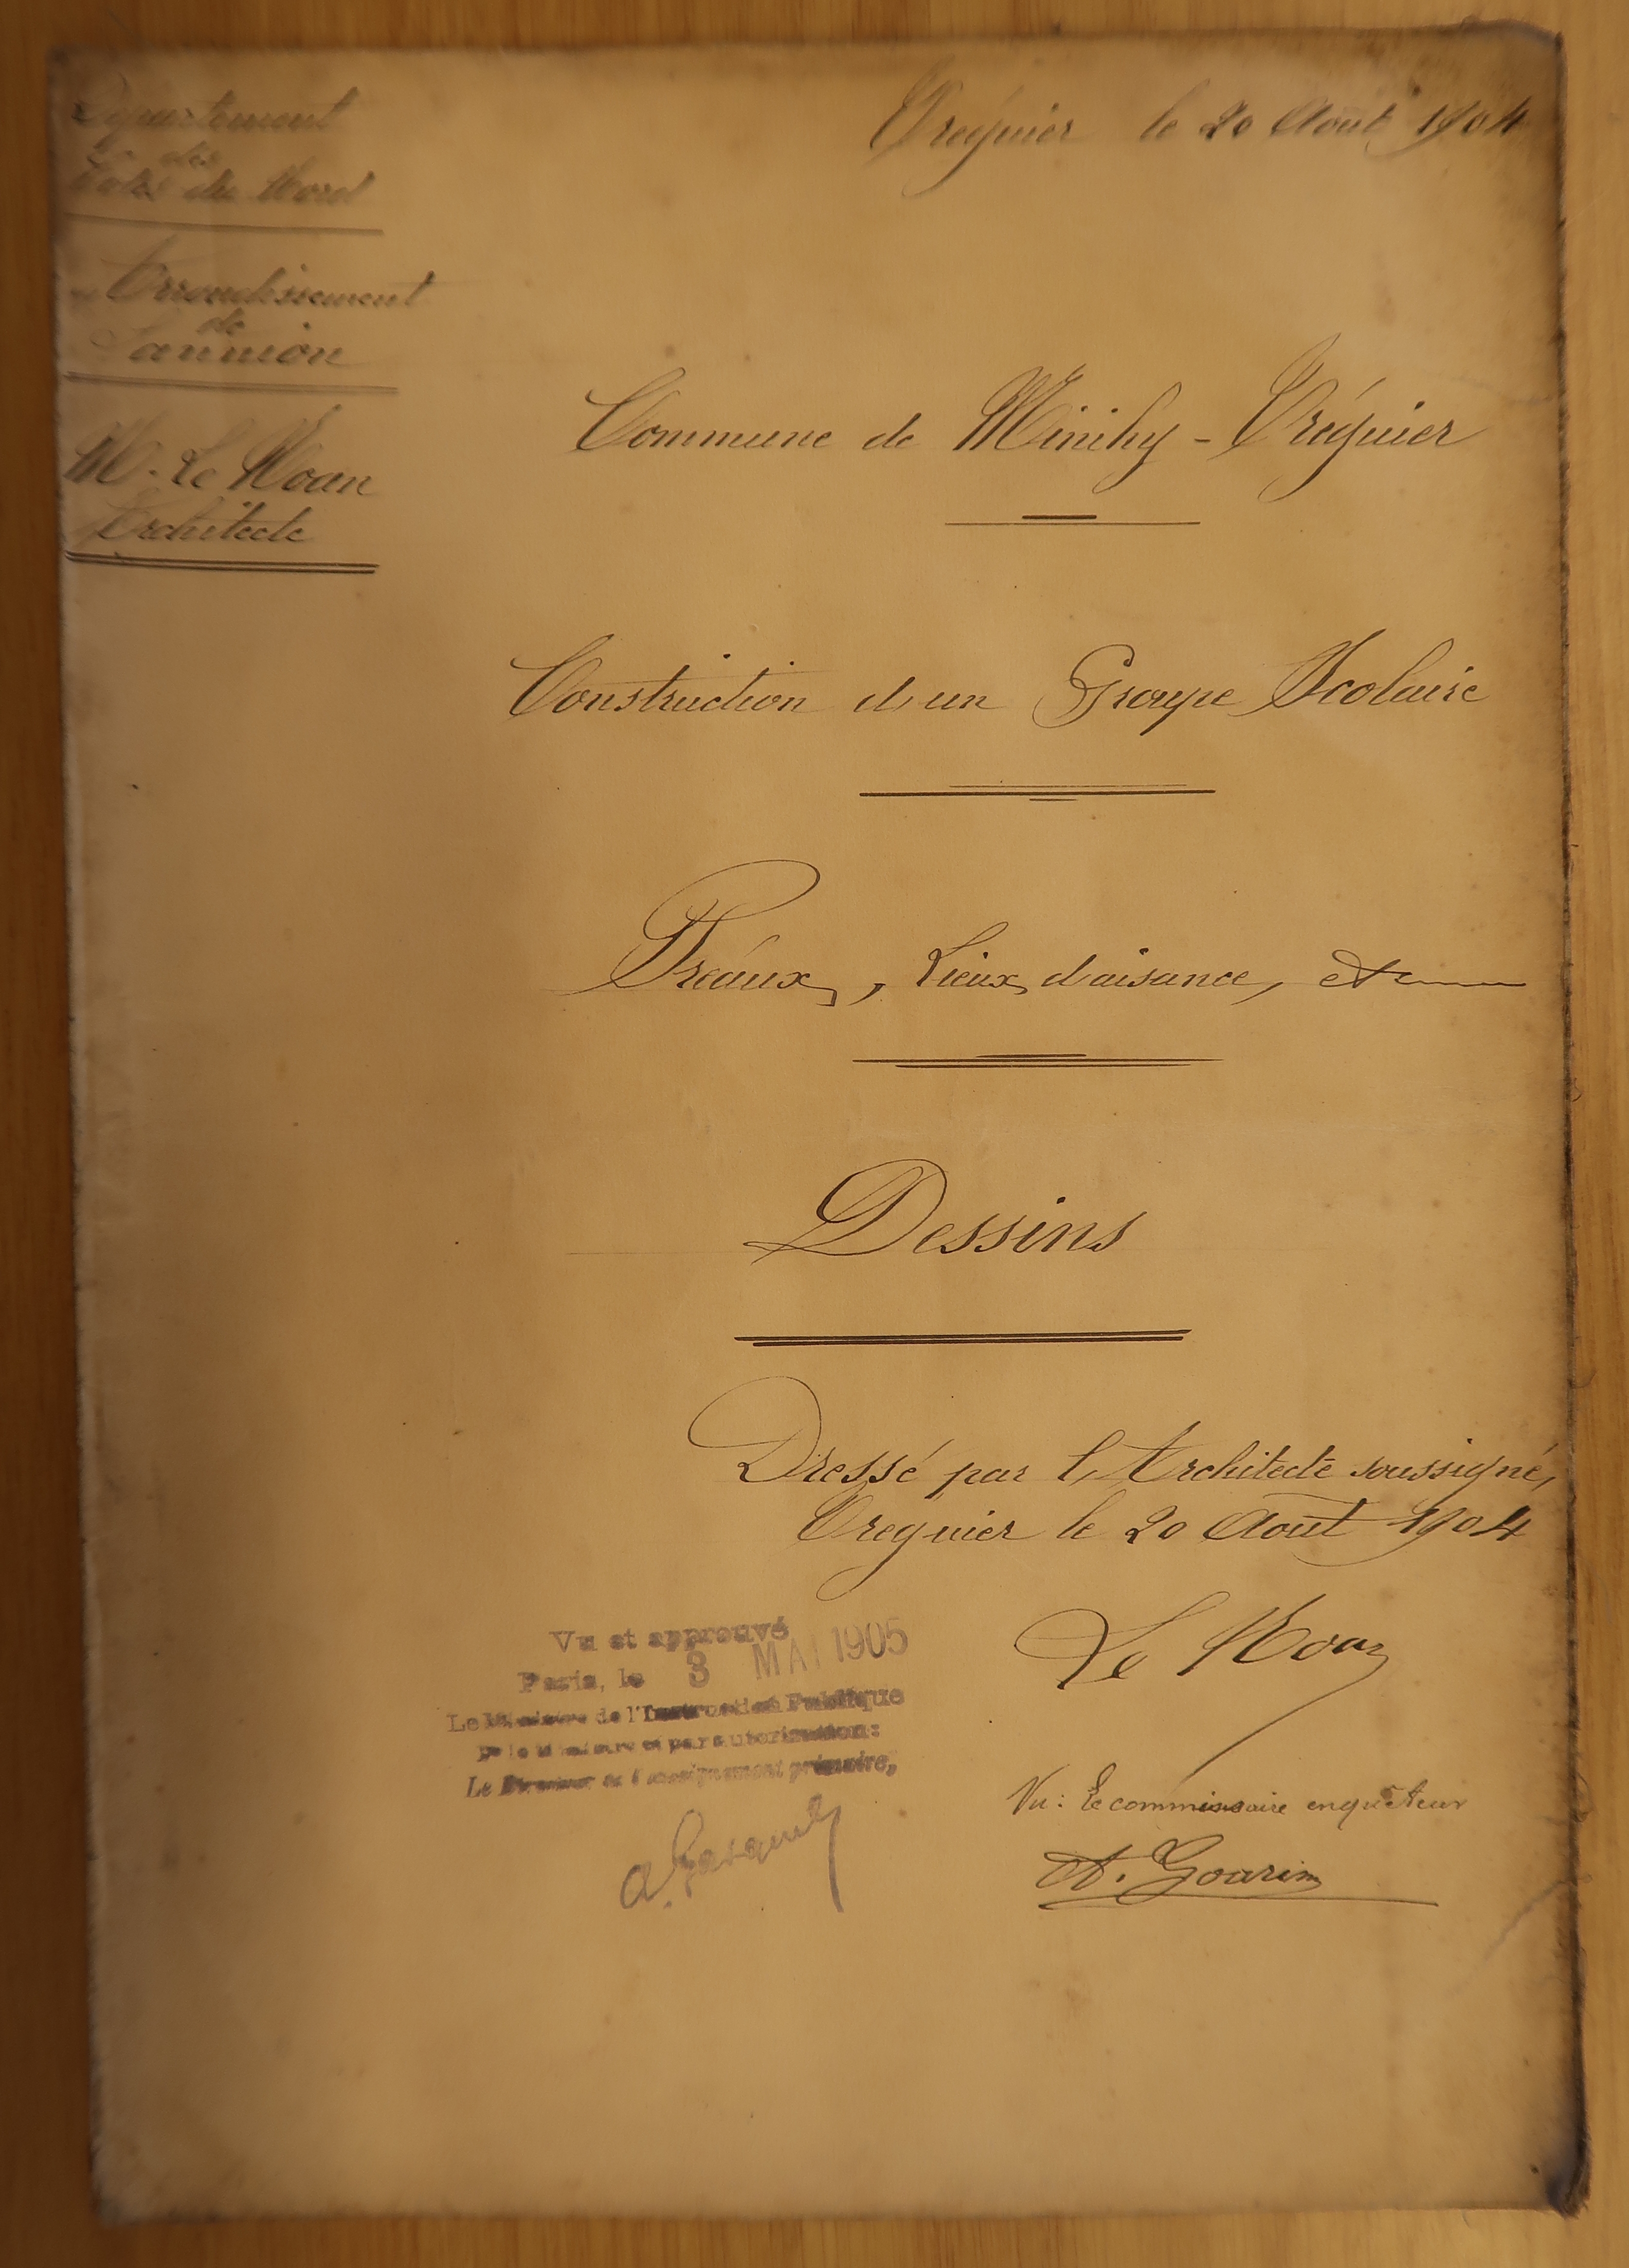 Département
des
Côtes du Nord
Arrondissement
de
Lannion
M. Le Moan
Architecte
Tréguier le 20 Août 1904
Commune de Minihy - Tréguier
Construction d'un Groupe Scolaire
Préaux, Lieux d'aisance, etc
Dessins
Dressé par l'Architecte soussigné,
Treguier le 20 Août 1904
Le Moan
Vu et approuvé
Paris, le 3 MAI 1905
Le Ministre de l'Instruction Publique
Pr le Ministre et par autorisation:
Le Directeur de l'enseignement primaire,
Vu: Le commissaire enquêteur
A. Goarin